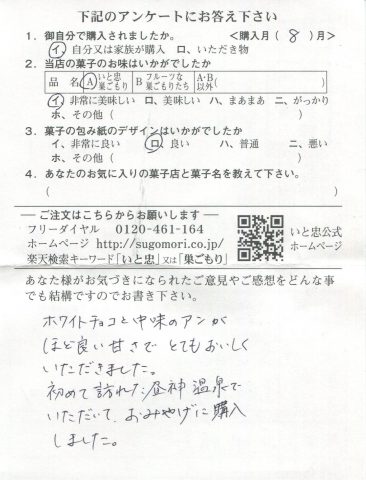 下記のアンケートにお答え下さい
1. 御自分で購入されましたか。 <購入月( 8 )月>
イ、自分又は家族が購入 ロ、いただき物
2. 当店の菓子のお味はいかがでしたか
品 名 A いと忠巣ごもり B フルーツな巣ごもりたち A・B以外( )
イ、非常に美味しい ロ、美味しい ハ、まあまあ ニ、がっかり
ホ、その他( )
3. 菓子の包み紙のデザインはいかがでしたか
イ、非常に良い ロ、良い ハ、普通 ニ、悪い
ホ、その他( )
4. あなたのお気に入りの菓子店と菓子名を教えて下さい。
( )
― ご注文はこちらからお願いします ―
フリーダイヤル 0120-461-164
ホームページ http://sugomori.co.jp/
楽天検索キーワード「いと忠」又は「巣ごもり」
いと忠公式
ホームページ
あなた様がお気づきになられたご意見やご感想をどんな事
でも結構ですのでお書き下さい。
ホワイトチョコと中味のアンが
ほど良い甘さで とてもおいしく
いただきました。
初めて訪れた昼神温泉で
いただいて、おみやげに購入
しました。